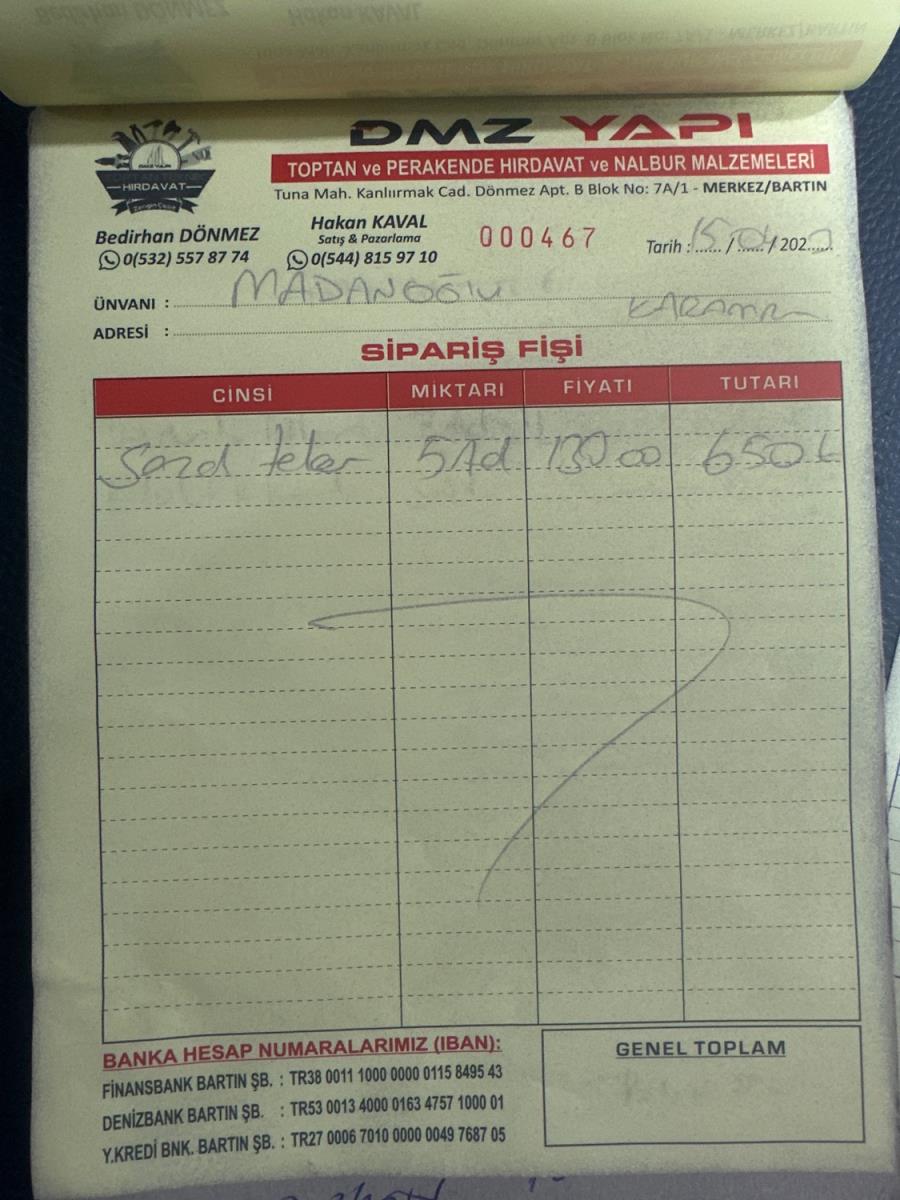 DMZ YAPI
TOPTAN ve PERAKENDE HIRDAVAT ve NALBUR MALZEMELERİ
Tuna Mah. Kanlıırmak Cad. Dönmez Apt. B Blok No: 7A/1 - MERKEZ/BARTIN
DMZ YAPI
HIRDAVAT
Bedirhan DÖNMEZ
0(532) 557 87 74
Hakan KAVAL
Satış & Pazarlama
0(544) 815 97 10
000467
Tarih : 15 / 04 / 202
ÜNVANI : MADANOĞLU
ADRESİ :
SİPARİŞ FİŞİ
CİNSİ MİKTARI FİYATI TUTARI
teker 5 Ad 130 00 650
BANKA HESAP NUMARALARIMIZ (IBAN):
FİNANSBANK BARTIN ŞB. : TR38 0011 1000 0000 0115 8495 43
DENİZBANK BARTIN ŞB. : TR53 0013 4000 0163 4757 1000 01
Y.KREDİ BNK. BARTIN ŞB. : TR27 0006 7010 0000 0049 7687 05
GENEL TOPLAM